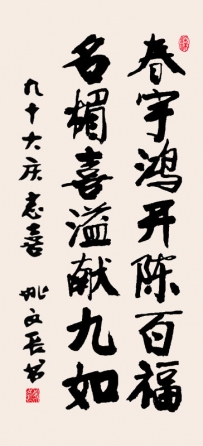 春宇鸿开陈百福
名楣喜溢献九如
九十大庆志喜 姚文長书